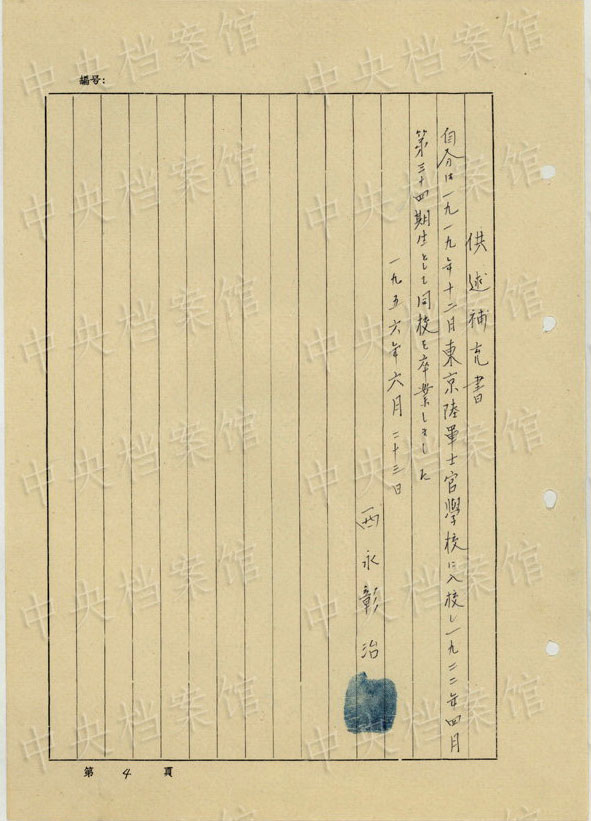 編号:
供述補充書
自分は一九一九年十二日東京陸軍士官學校に入校し一九二二年四月
第三十四期生として同校を卒業しました
一九五六年六月二十三日
西永彰治
第 4 頁
中央档案馆